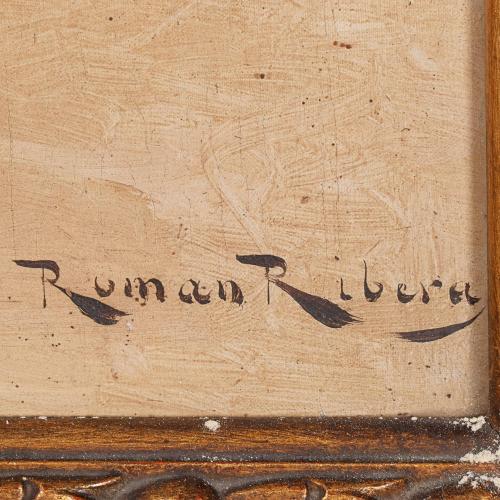 Roman Ribera